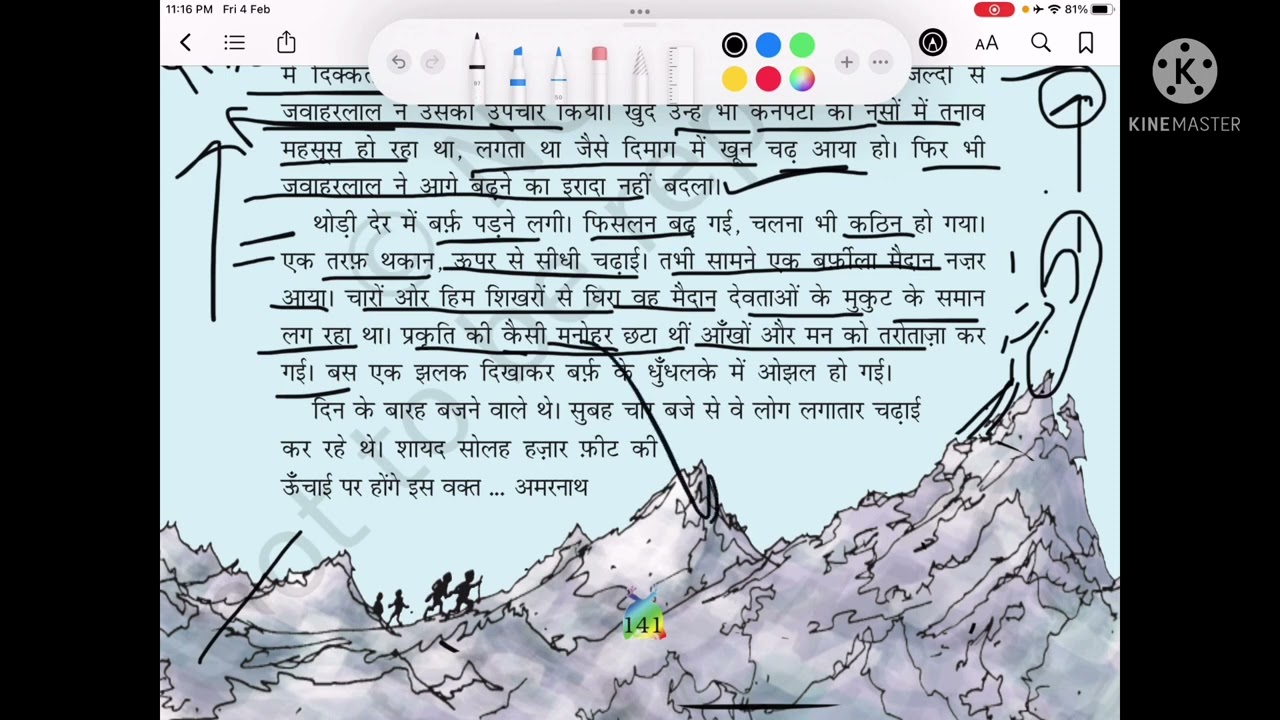 11:16 PM Fri 4 Feb
81%
AA
में दिक्कत जल्दी से
जवाहरलाल ने उसका उपचार किया। खुद उन्हें भी कनपटी की नसों में तनाव
महसूस हो रहा था, लगता था जैसे दिमाग में खून चढ़ आया हो। फिर भी
जवाहरलाल ने आगे बढ़ने का इरादा नहीं बदला।
थोड़ी देर में बर्फ़ पड़ने लगी। फिसलन बढ़ गई, चलना भी कठिन हो गया।
एक तरफ़ थकान, ऊपर से सीधी चढ़ाई। तभी सामने एक बर्फ़ीला मैदान नज़र
आया। चारों ओर हिम शिखरों से घिरा वह मैदान देवताओं के मुकुट के समान
लग रहा था। प्रकृति की कैसी मनोहर छटा थीं आँखों और मन को तरोताज़ा कर
गई। बस एक झलक दिखाकर बर्फ़ के धुँधलके में ओझल हो गई।
दिन के बारह बजने वाले थे। सुबह चार बजे से वे लोग लगातार चढ़ाई
कर रहे थे। शायद सोलह हज़ार फ़ीट की
ऊँचाई पर होंगे इस वक्त ... अमरनाथ
141
K
KINEMASTER